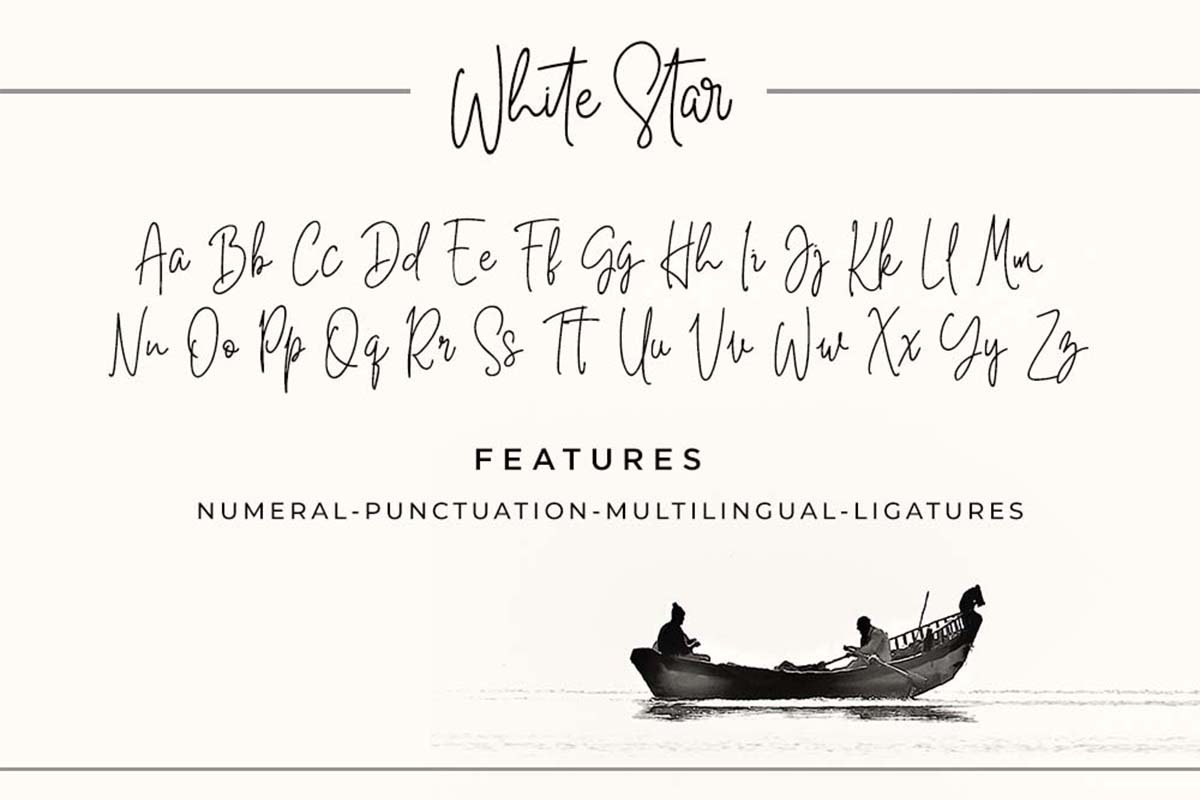 White Star
Aa Bb Cc Dd Ee Ff Gg Hh Ii Jj Kk Ll Mm
Nn Oo Pp Qq Rr Ss Tt Uu Vv Ww Xx Yy Zz
FEATURES
NUMERAL-PUNCTUATION-MULTILINGUAL-LIGATURES